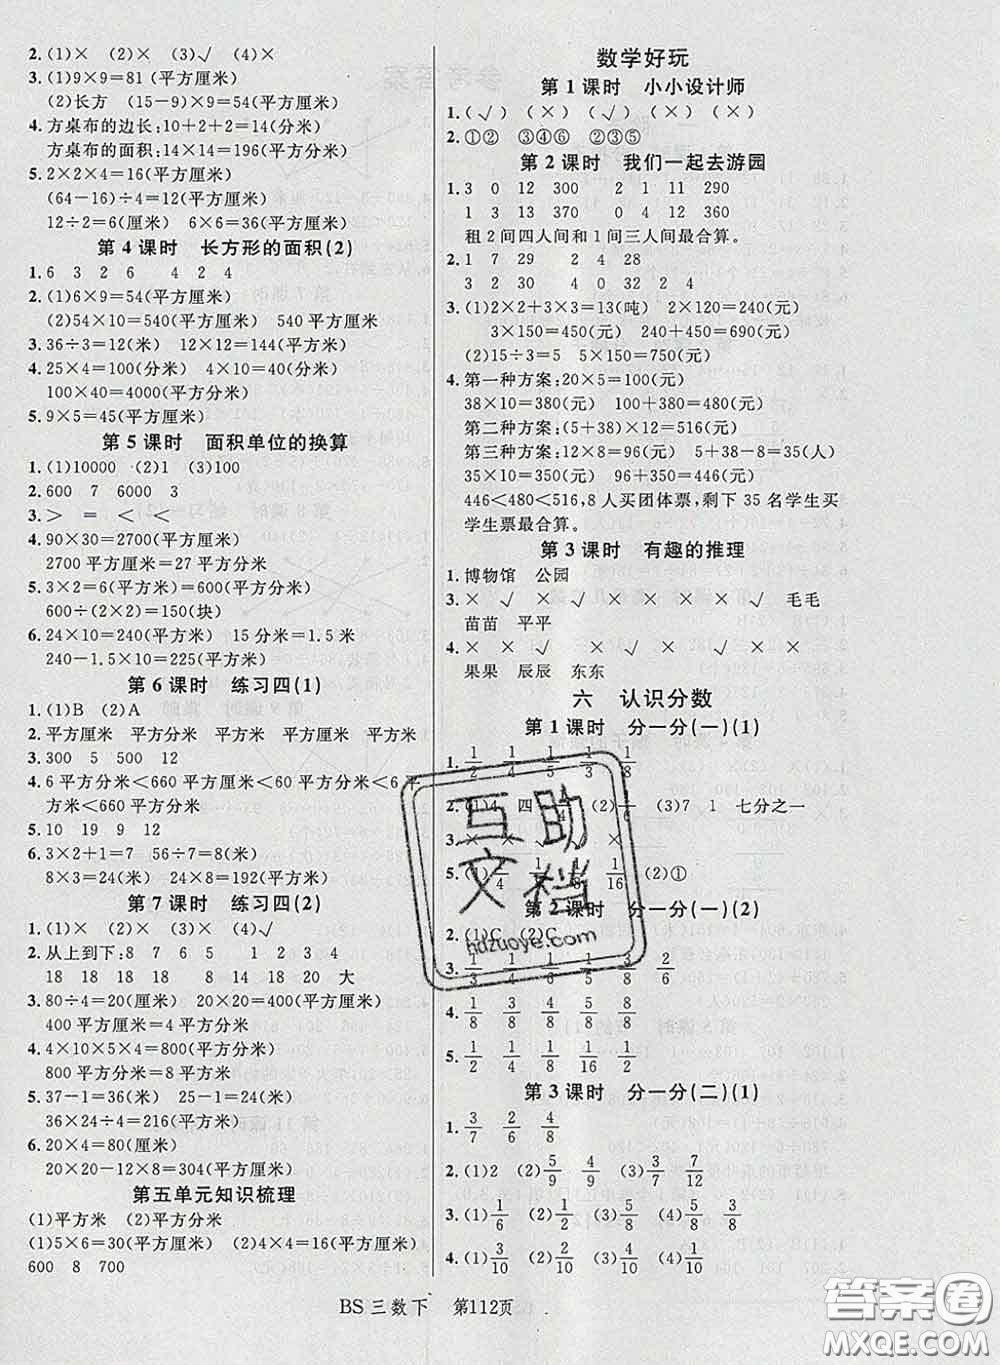 2.(1)× (2)× (3)√ (4)×
3.(1)9×9=81(平方厘米)
(2)长方 (15-9)×9=54(平方厘米)
4.方桌布的边长:10+2+2=14(分米)
方桌布的面积:14×14=196(平方分米)
5.2×2×4=16(平方厘米)
(64-16)÷4=12(平方厘米)
12÷2=6(厘米) 6×6=36(平方厘米)
第4课时 长方形的面积(2)
1.6 3 2 6 4 2 4
2.(1)6×9=54(平方厘米)
(2)54×10=540(平方厘米) 540平方厘米
3.36÷3=12(米) 12×12=144(平方米)
4.25×4=100(分米) 4×10=40(分米)
100×40=4000(平方分米)
5.9×5=45(平方厘米)
第5课时 面积单位的换算
1.(1)10000 (2)1 (3)100
2.600 7 6000 3
3.> = < <
4.90×30=2700(平方厘米)
2700平方厘米=27平方分米
5.3×2=6(平方米)=600(平方分米)
600÷(2×2)=150(块)
6.24×10=240(平方米) 15分米=1.5米
240-1.5×10=225(平方米)
第6课时 练习四(1)
1.(1)B (2)A
2.平方厘米 平方分米 平方米 平方厘米
3.300 5 500 12
4.6平方分米<660平方厘米<60平方分米<6平
方米<660平方分米
5.10 19 9 12
6.3×2+1=7 56÷7=8(米)
8×3=24(米) 24×8=192(平方米)
第7课时 练习四(2)
1.(1)× (2)× (3)× (4)√
2.从上到下:8 7 6 5 1 2 3 4
18 18 18 18 20 18 大
3.80÷4=20(厘米) 20×20=400(平方厘米)
400平方厘米=4平方分米
4.4×10×5×4=800(平方分米)
800平方分米=8平方米
5.37-1=36(米) 25-1=24(米)
36×24÷4=216(平方米)
6.20×4=80(厘米)
20×20-12×8=304(平方厘米)
第五单元知识梳理
(1)平方米 (2)平方分米
(1)5×6=30(平方厘米) (2)4×4=16(平方厘米)
600 8 700
数学好玩
第1课时 小小设计师
1.(√) (×) (×) (×)
2.①② ③④⑥ ②③⑤
第2课时 我们一起去游园
1.3 0 12 300 2 1 11 290
1 3 13 370 0 4 12 360
租2间四人间和1间三人间最合算。
2.1 7 29 2 4 28
3 2 30 4 0 32 2 4
3.(1)2×2+3×3=13(吨) 2×120=240(元)
3×150=450(元) 240+450=690(元)
(2)15÷3=5 5×150=750(元)
4.第一种方案:20×5=100(元)
38×10=380(元) 100+380=480(元)
第二种方案:(5+38)×12=516(元)
第三种方案:12×8=96(元) 5+38-8=35(人)
35×10=350(元) 96+350=446(元)
446<480<516,8人买团体票,剩下35名学生买
学生票最合算。
第3课时 有趣的推理
1.博物馆 公园
3.× √ × √ × × × × √ 毛毛
苗苗 平平
4.× × √ × √ × √ × ×
果果 辰辰 东东
六 认识分数
第1课时 分一分(一)(1)
1. 1/2 1/4 1/5 1/3 1/8
2.(1)4 四 (3)7 1 七分之一
3.× ×
5.(1) 1/16 (2)①
第2课时 分一分(一)(2)
2.(1)C (2)C
3. 1/3 3/8 2/6
4. 1/8 3/8 4/8 5/8 8/8
5. 1/2 1/4 1/8 1/16 1/2
第3课时 分一分(二)(1)
1. 3/7 2/6 4/8
2.(1)2 (2)5/9 4/9 (3)4 (4)5/12 7/12
3.(1)1/6 (2)1/2 (3)1/6 (4)3/9
4.(1)9/10 (2)1/10 (3)9/10 (4)1/10
BS三数下 第112页
互助
文档
hdzuoye.com
答案圈
MXQE.COM